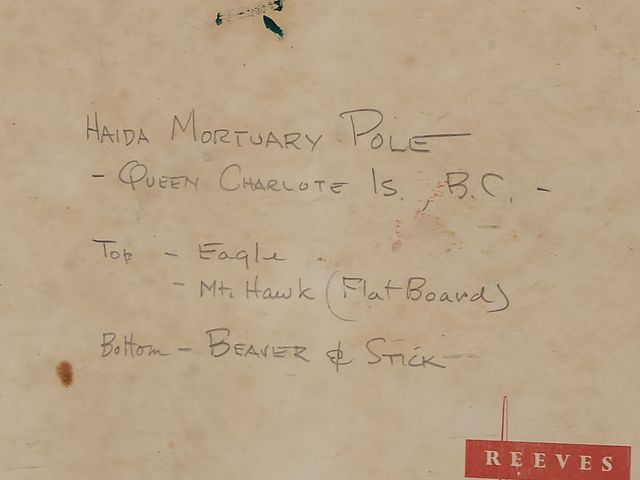 HAIDA MORTUARY POLE
- QUEEN CHARLOTE IS., B.C. -
Top - Eagle
- Mt. Hawk (Flat Board)
Bottom - BEAVER & STICK
REEVES